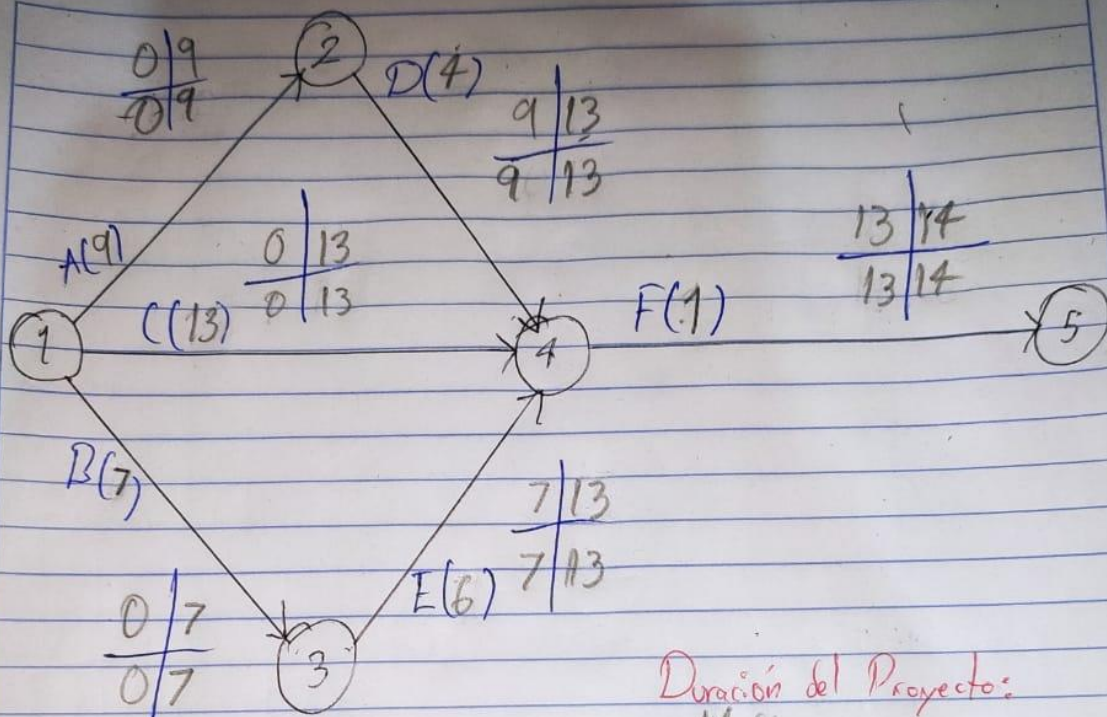 0 | 9
0 | 9
2
D(4)
9 | 13
9 | 13
A(9)
0 | 13
0 | 13
13 | 14
13 | 14
C(13)
F(1)
1
4
5
B(7)
7 | 13
7 | 13
E(6)
0 | 7
0 | 7
3
Duración del Proyecto: